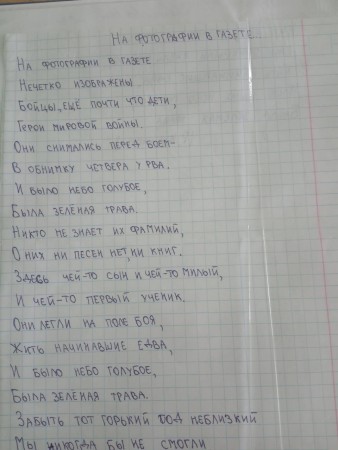 На фотографии в газете
На фотографии в газете
Нечетко изображены
Бойцы, ещё почти что дети,
Герои мировой войны.
Они снимались перед боем-
В обнимку четвера у рва.
И было небо голубое,
Была зелёная трава.
Никто не знает их фамилий,
О них ни песен нет, ни книг.
Здесь чей-то сын и чей-то милый,
И чей-то первый ученик.
Они легли на поле боя,
Жить начинавшие едва,
И было небо голубое,
Была зелёная трава.
Забыть тот горький год неблизкий
Мы никогда бы не смогли